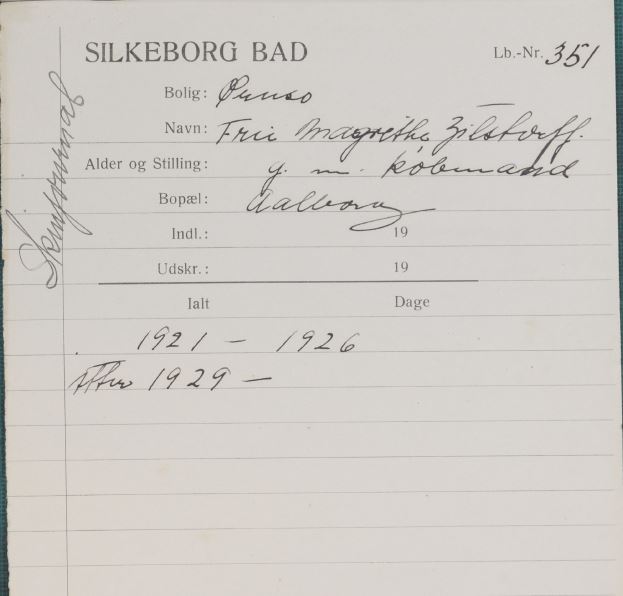 SILKEBORG BAD
Lb.-Nr. 351
Bolig: Ørnso
Navn: Frie Magrethe Zilstorff.
Alder og Stilling: g. m. købmand
Bopæl: Aalborg
Indl.: 19
Udskr.: 19
Ialt Dage
1921 - 1926
Atter 1929 -